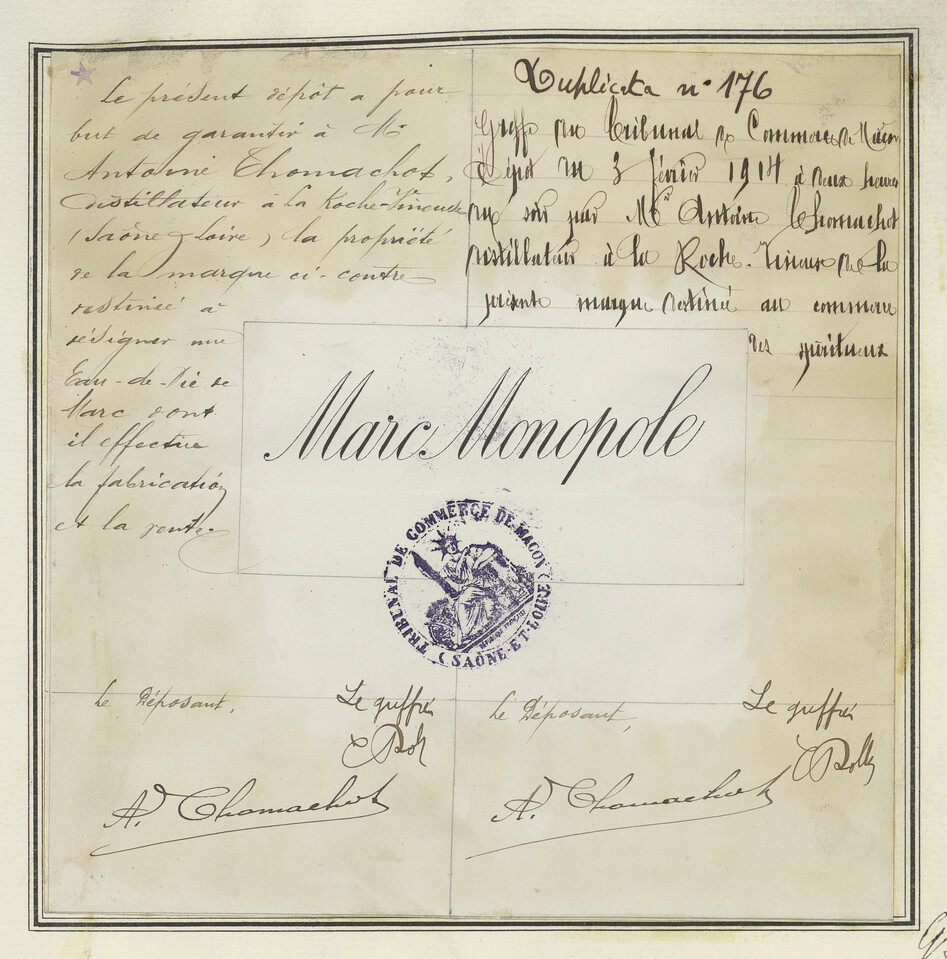 Le présent dépôt a pour
but de garantir à Mr
Antoine Thomachot,
distillateur à la Roche-Vineuse
(Saône & Loire) la propriété
de la marque ci-contre
destinée à
désigner une
Eau-de-Vie de
Marc dont
il effectue
la fabrication
et la vente.
Duplicata n° 176
Greffe du Tribunal de Commerce de Mâcon
Dépôt du 3 février 1914 à deux heures
du soir par Mr Antoine Thomachot
distillateur à la Roche-Vineuse de la
présente marque destinée au commerce
des spiritueux
Marc Monopole
TRIBUNAL DE COMMERCE DE MACON
(SAÔNE-ET-LOIRE)
Le Déposant,
Le greffier
A. Thomachot
Le Déposant,
Le greffier
A. Thomachot